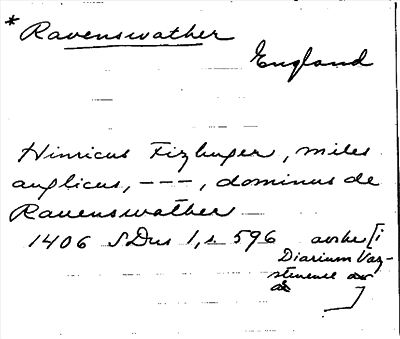 * Ravenswather
England
Hinricus Fizhuger, miles
anglicus, ---, dominus de
Ravenswather
1406 SDns 1, s 596 avskr [i
Diarium Vaz-
stenense av
]